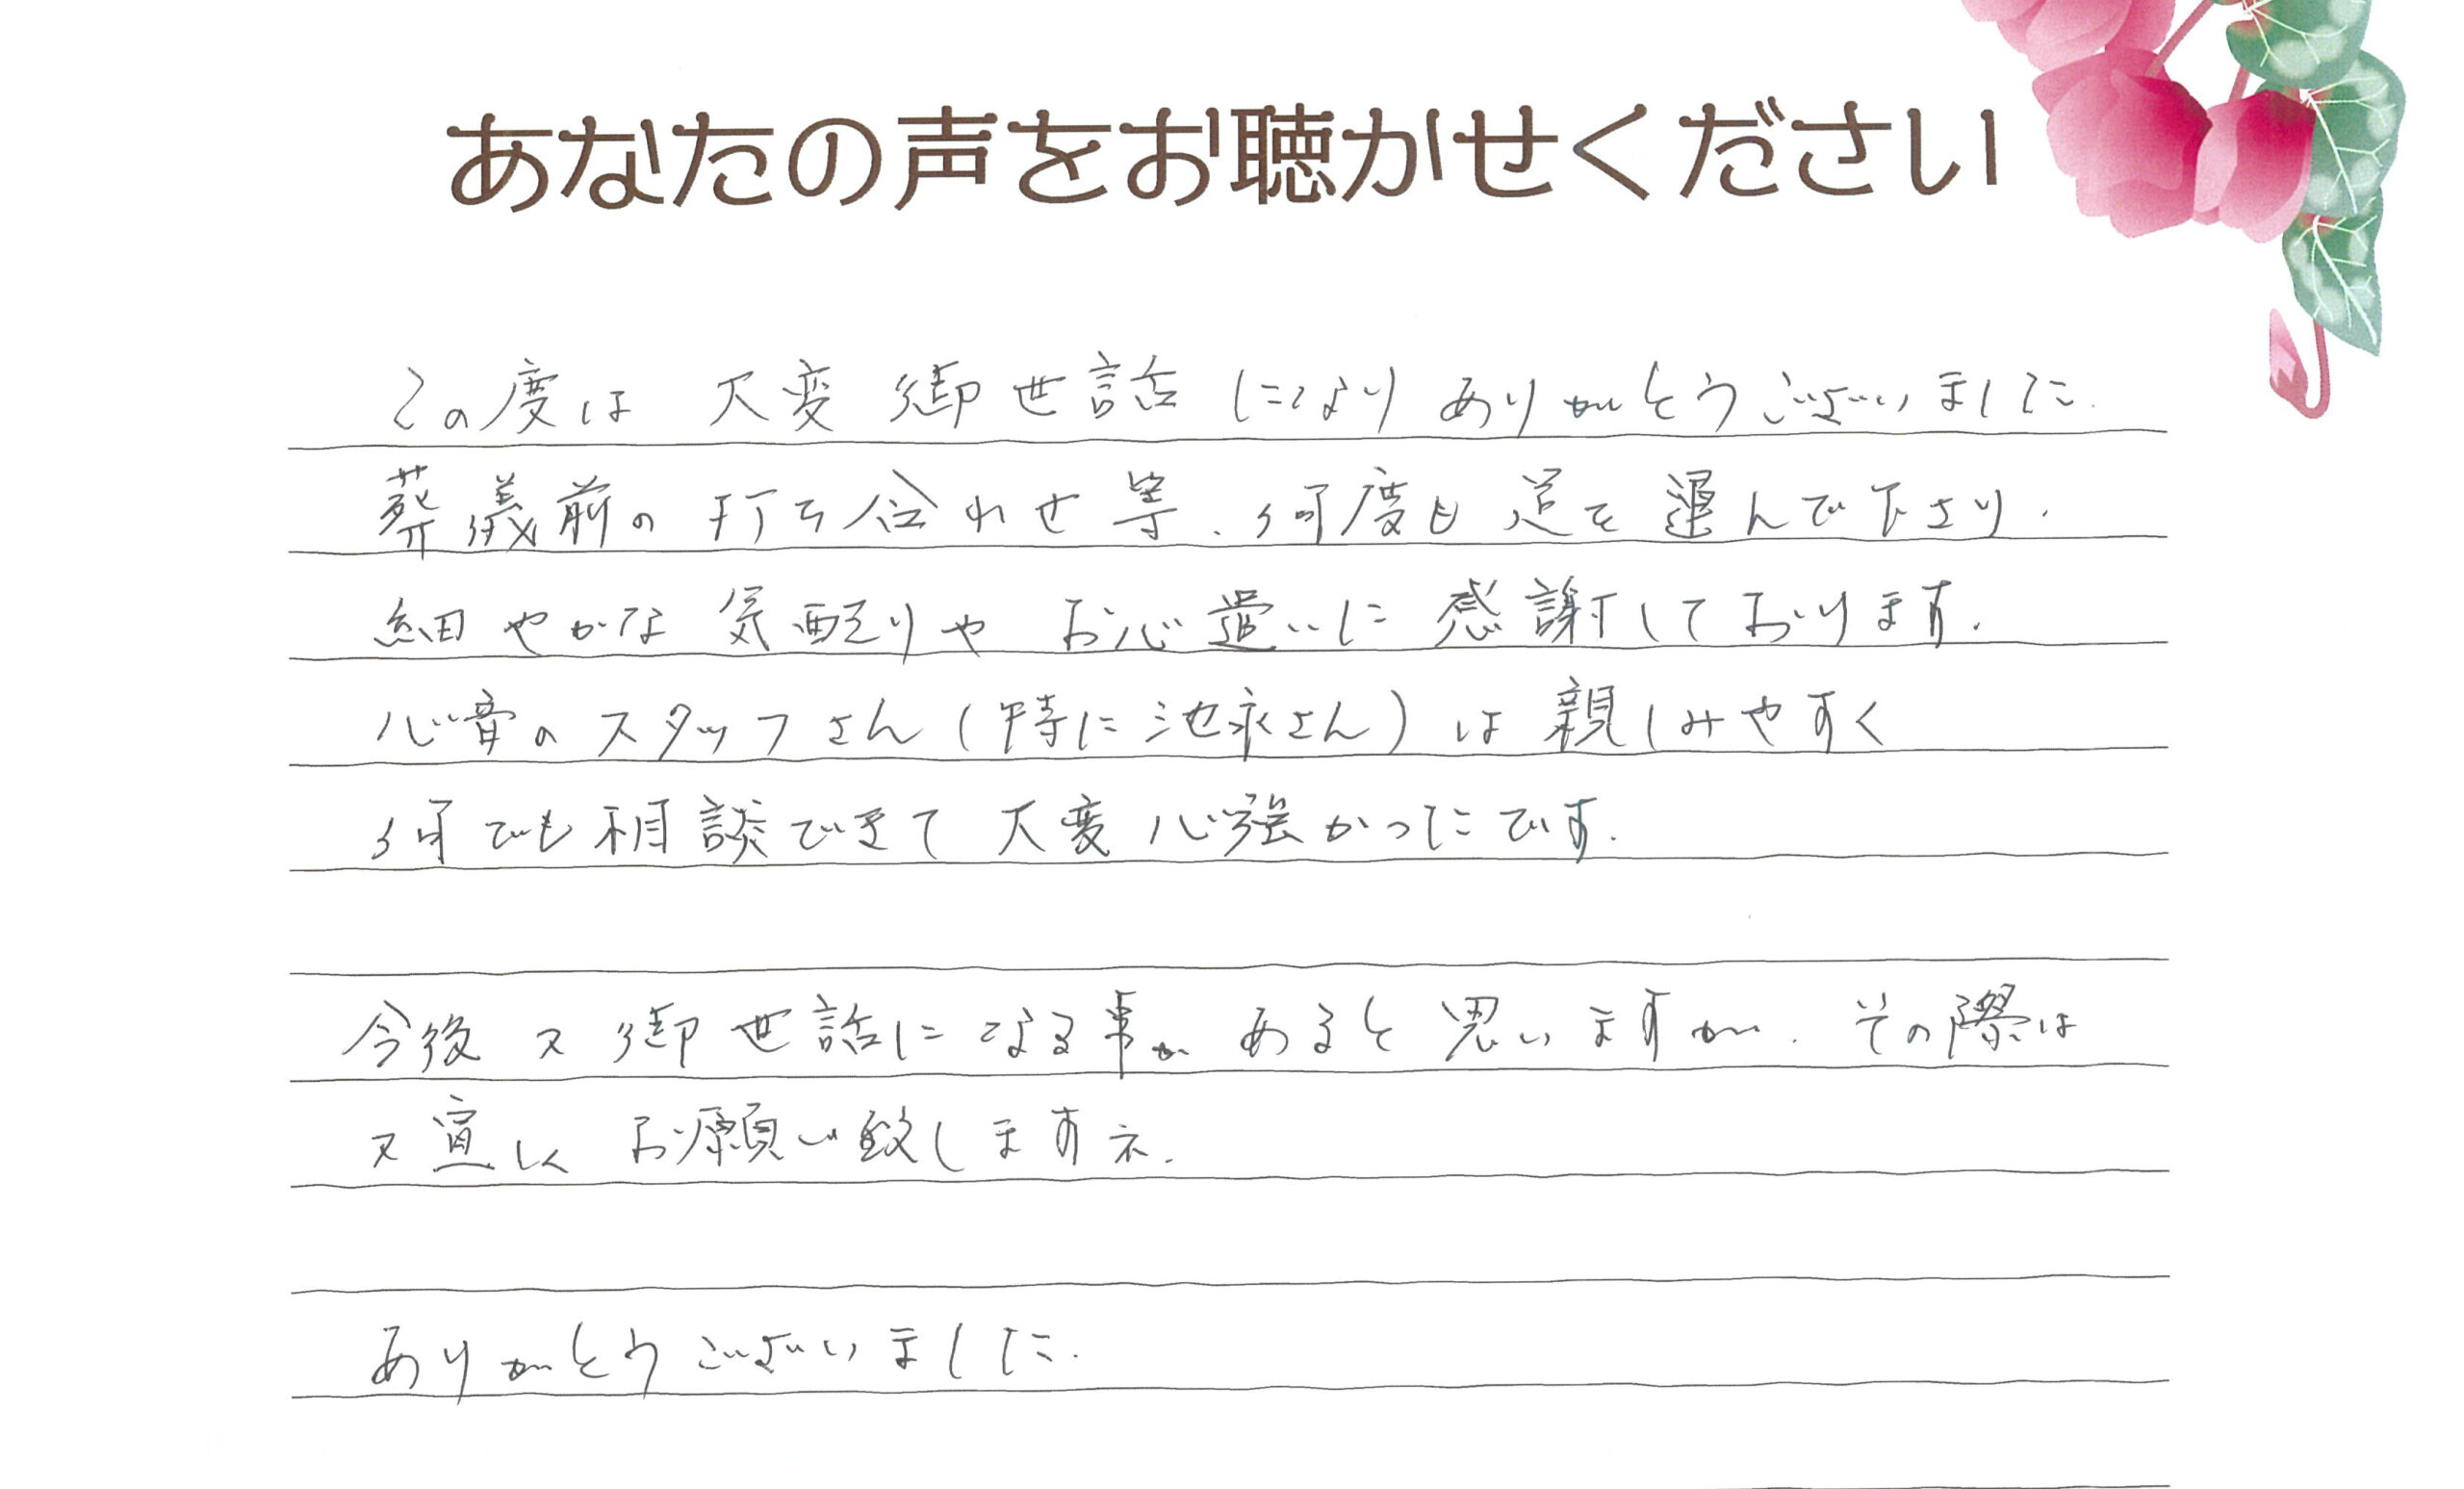 あなたの声をお聴かせください
この度は 大変 御世話になり ありがとうございました.
葬儀前の 打ち合わせ等、何度も 足を 運んで下さり.
細やかな 気配りや お心遣いに 感謝しております.
心音の スタッフさん(特に 池永さん)は 親しみやすく
何でも相談できて 大変 心強かったです.
今後 又 御世話になる事が あると 思いますが. その際は
又宜しく お願い致しますネ.
ありがとうございました.